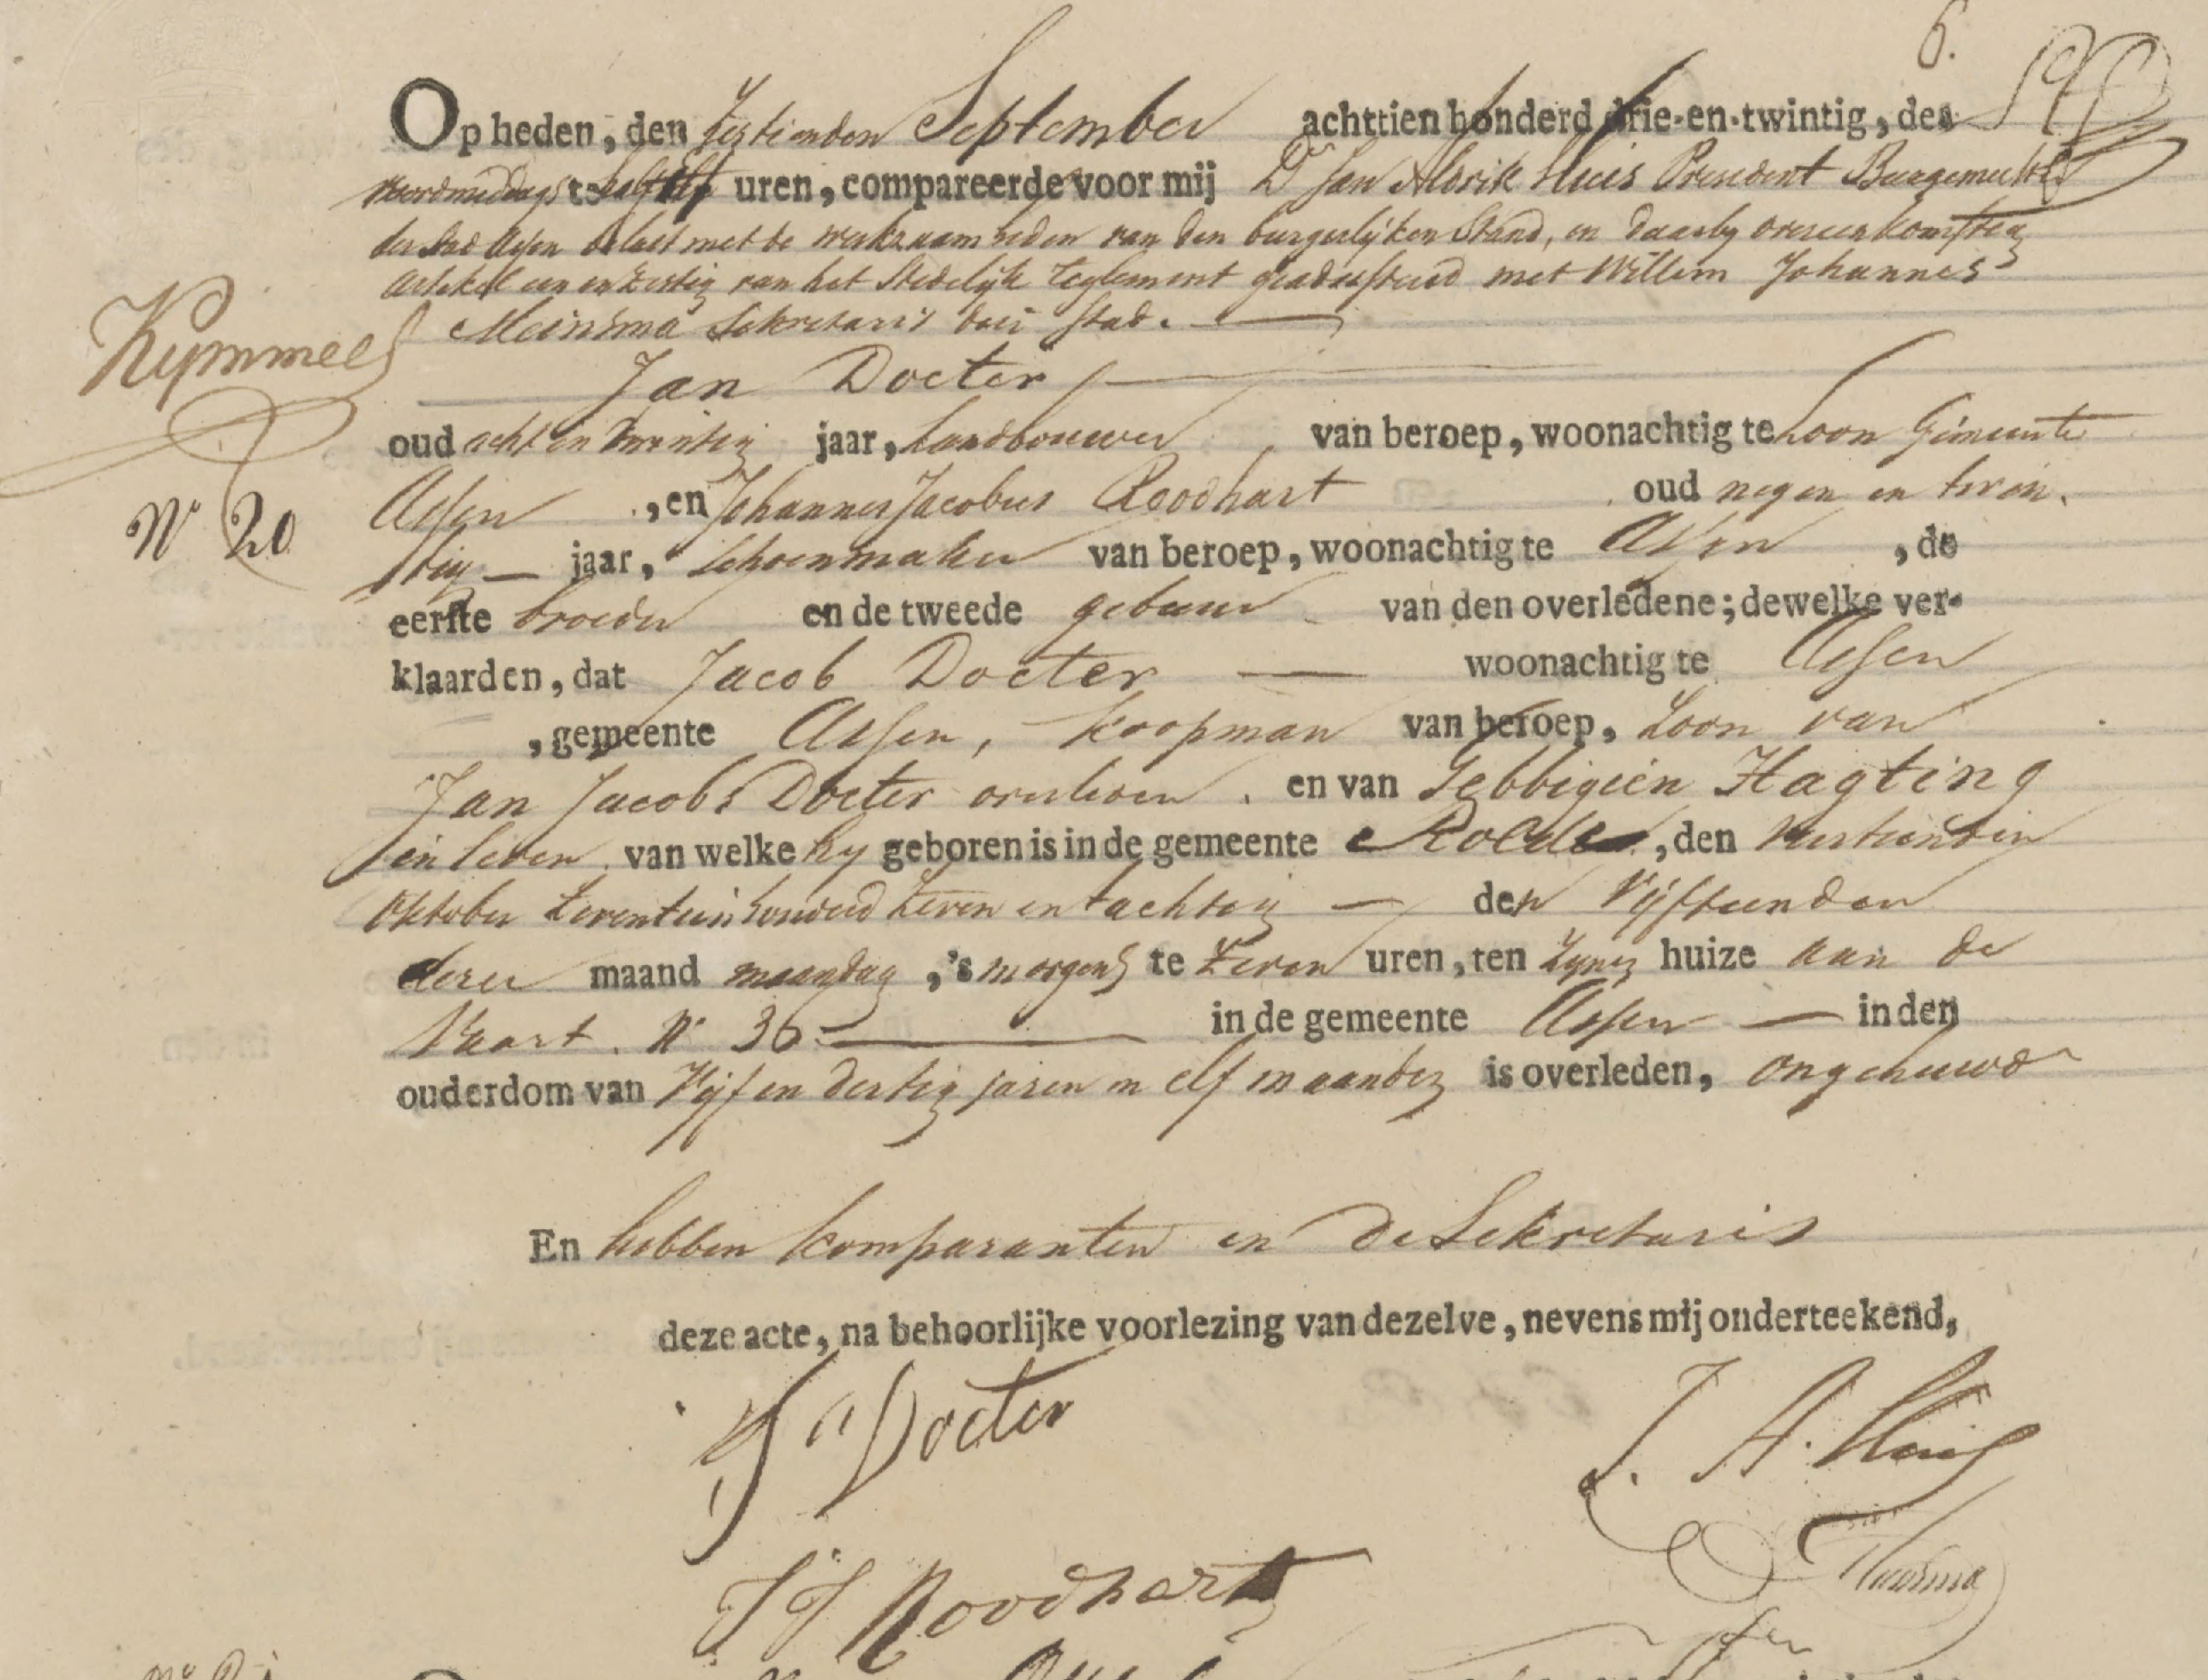 6.
Op heden, den zestienden September achttien honderd drie-en-twintig, des
voordmiddags te half elf uren, compareerde voor mij Dr Jan Aldrik Huis President Burgemeester
der Stad Assen belast met de werkzaamheden van den burgerlijken Stand, en daarby overeenkomstig
artikel een en zestig van het Stedelijk Reglement geadsisteerd met Willem Johannes
Meinsma Sekretaris dier stad.
Kymmel
Jan Docter
oud acht en twintig jaar, landbouwer van beroep, woonachtig te Loon Gemeente
Assen , en Johannes Jacobus Roodhart oud negen en twin.
No 20
tig jaar, schoenmaker van beroep, woonachtig te Assen , de
eerste broeder en de tweede gebuur van den overledene; dewelke ver-
klaarden, dat Jacob Docter woonachtig te Assen
, gemeente Assen, koopman van beroep, zoon van
Jan Jacobs Docter overleden . en van Gebbigien Hagting
in leven van welke hy geboren is in de gemeente Rolde , den veertienden
Oktober zeventienhonderd zeven en tachtig den Vijftienden
dezer maand maandag , 's morgens te zeven uren, ten zynen huize aan de
Vaart. No 36 in de gemeente Assen in den
ouderdom van Vijf en dertig jaren en elf maanden is overleden, ongehuwd
En hebben komparanten en de Sekretaris
deze acte, na behoorlijke voorlezing van dezelve, nevens mij onderteekend,
J Docter
J. A. Huis
J J Roodhart
Meinsma